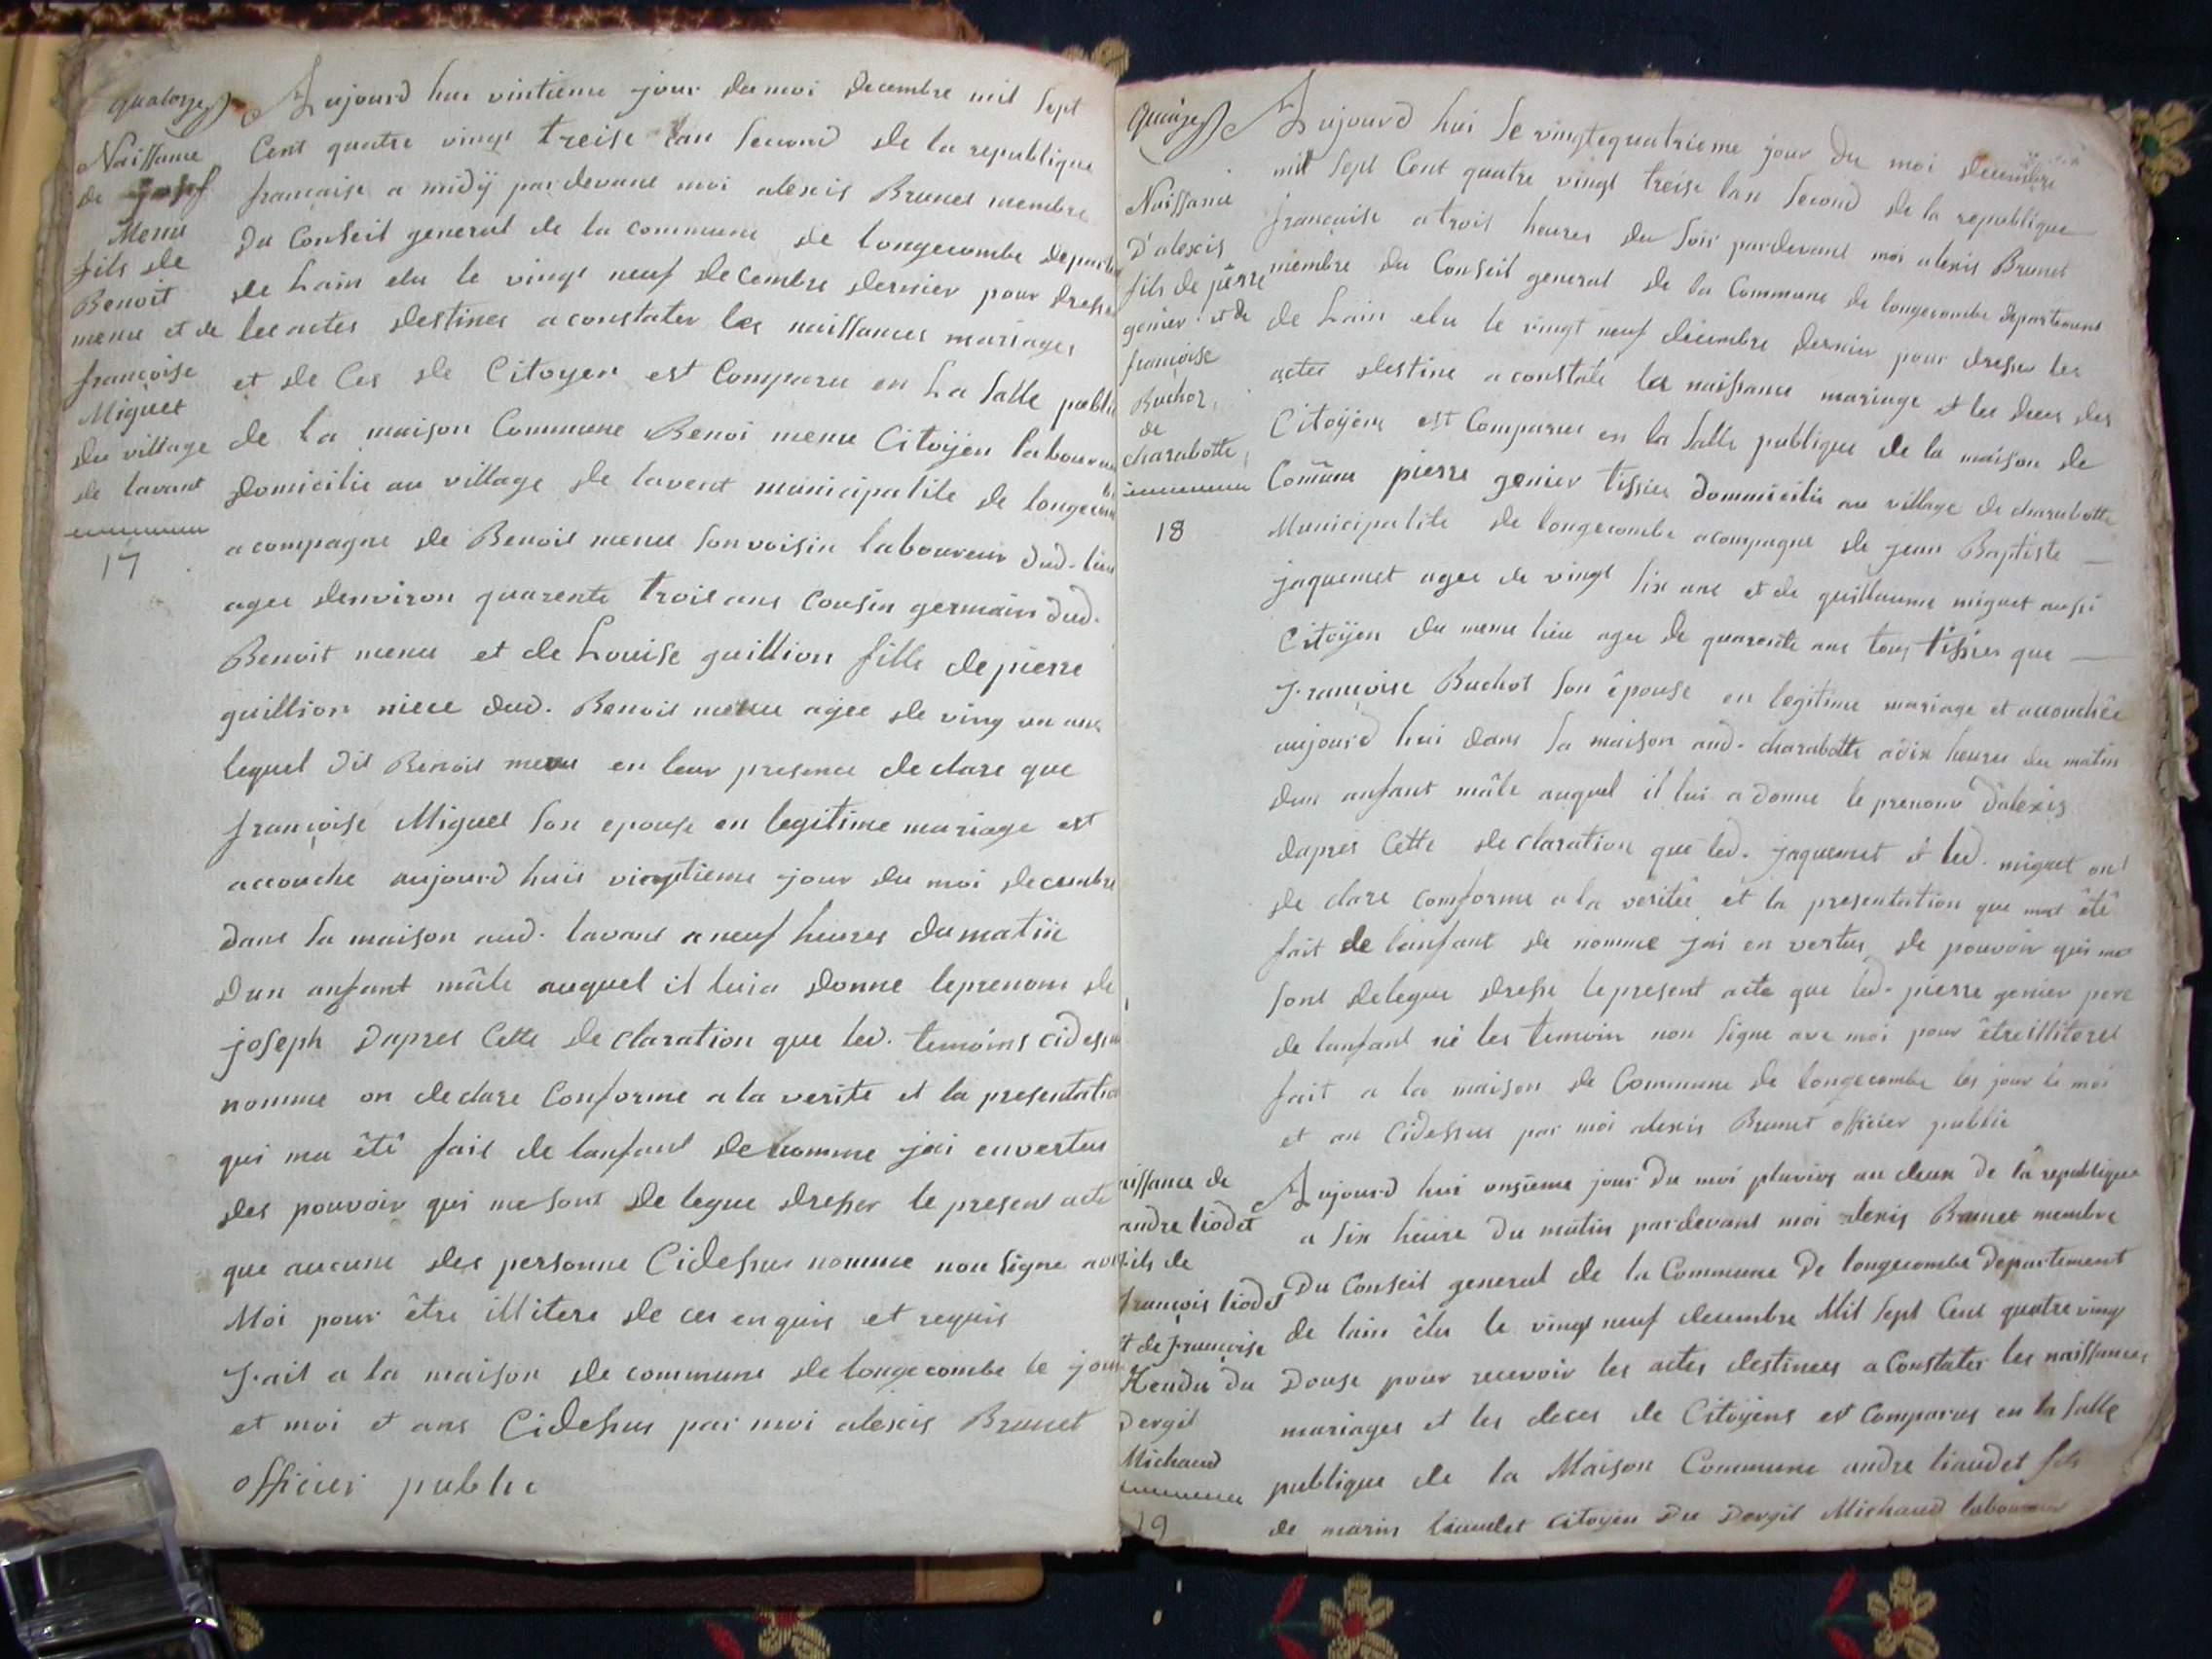 quatorze
Naissance
de josepf
Menu
fils de
Benoit
menu et de
françoise
Miguet
du village
de lavant
17
Aujourd hui vintieme jour du moi decembre mil sept
Cent quatre vingt treise lan second de la republique
francaise a midÿ pardevant moi alexis Brunet membre
du Conseil general de la commune de longecombe depart
de Lain elu le vingt neuf decembre dernier pour dresse
les actes destines a constater les naissances mariages
et de Ces de Citoyen est Comparu en La salle publi
de la maison Commune Benoi menu Citoÿen laboureur
domicilie au village de lavent municipalite de longecom
acompagne de Benoit menu son voisin laboureur dud. lieu
agee denviron quarente trois ans Cousin germain dud.
Benoit menu et de Louise guillion fille de pierre
guillion niece dud. Benoit menu agee de ving un ans
lequel dit Benoit menu en leur presence declare que
françoise Miguet son epouse en legitime mariage est
accouche aujourd huis vingtieme jour du moi decembre
dans sa maison aud. lavant a neuf heures du matin
dun anfant mâle auquel il lui a donne leprenom de
joseph Dapres Cette de claration que led. temoins cidessu
nomme on declare Conforme a la verite et la presentatio
qui ma êtê fait de lanfant de nomme jai envertus
des pouvoir qui me sont de legue dresser le present acte
que aucune des personne Cidessus nomme non signe avec
Moi pour être illitere de ces enquis et requis
Fait a la maison de commune de longecombe le jour
et moi et ans Cidessus par moi alexis Brunet
officier public
quinze
Naissance
D'alexis
fils de pierre
genier et de
françoise
Buchoz
de
charabotte
18
Aujourd hui le vingtequatrieme jour du moi decembre
mil sept Cent quatre vingt treise lan second de la republique
francaise a trois heures du soir pardevant moi alexis Brunet
membre du Conseil general de la Commune de longecombe departement
de Lain elu le vingt neuf decembre dernier pour dresser les
actes destine a constate les naissance mariage et les deces des
Citoÿens est Comparus en la salle publique de la maison de
Comune pierre genier tissier dommicilie au village de charabotte
Municipalite de longecombe acompagne de jean Baptiste
jaquemet agee de vingt six ans et de guillaume miguet aussi
Citoÿen du meme lieu agee de quarente ans tous tissier que
françoise Buchot son êpouse en legitime mariage et accouchêe
aujourd hui dans sa maison aud. charabotte a dix heures du matin
dun anfant mâle auquel il lui a donne le prenom d'alexis
dapres Cette de claration que led. jaquemet et led. miguet on
de clare comforme a la veritê et la presentation que mat êtê
fait de lanfant de nomme jai en vertus de pouvoir qui me
sont delegue dresse lepresent acte que led. pierre genier pere
de lanfant ni les temoin non signe ave moi pour être illiteres
fait a la maison de Commune de longecombe les jour le moi
et an Cidessus par moi alexis Brunet officier public
aissance de
andre liodet
fils de
françois liodet
et de françoise
du
Dergit
Michaud
19
Aujourd hui onsieme jour du moi pluvios an deux de la republique
a six heure du matin pardevant moi alexis Brunet membre
Du Conseil general de la Commune De longecombe Departement
de lain êlu le vingt neuf decembre Mil sept Cent quatre ving
Douse pour recevoir les actes destinees a Constater les naissances
mariages et les deces de Citoÿens est Comparus en la salle
publique de la Maison Commune andre liaudet fils
de marin liaudet citoÿen Du Dergit Michaud laboureur